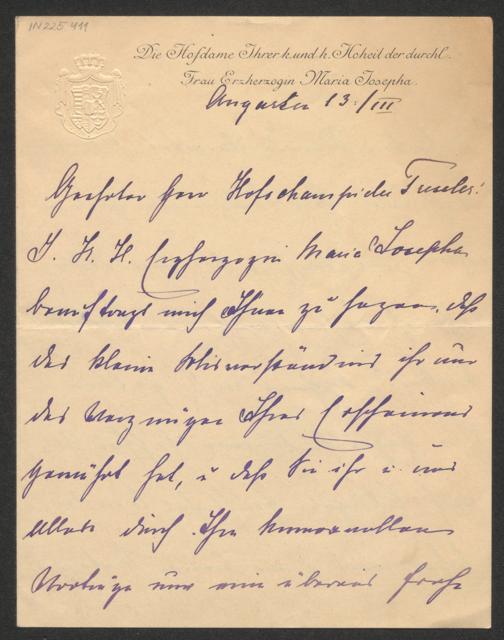 IN 225 411
Die Hofdame Ihrer k. und k. Hoheit der durchl.
Frau Erzherzogin Maria Josepha.
Augarten 13./III
Geehrter Herr Hofschauspieler
I. K. H. Erzherzogin Maria Josepha
beauftragt mich Ihnen zu sagen, daß
das kleine Misverständnis ihr nur
das Vergnügen Ihres Erscheinens
gewährt hat, u daß Sie ihr u. uns
Allen durch Ihre humorvollen
Vorträge nur eine überaus frohe